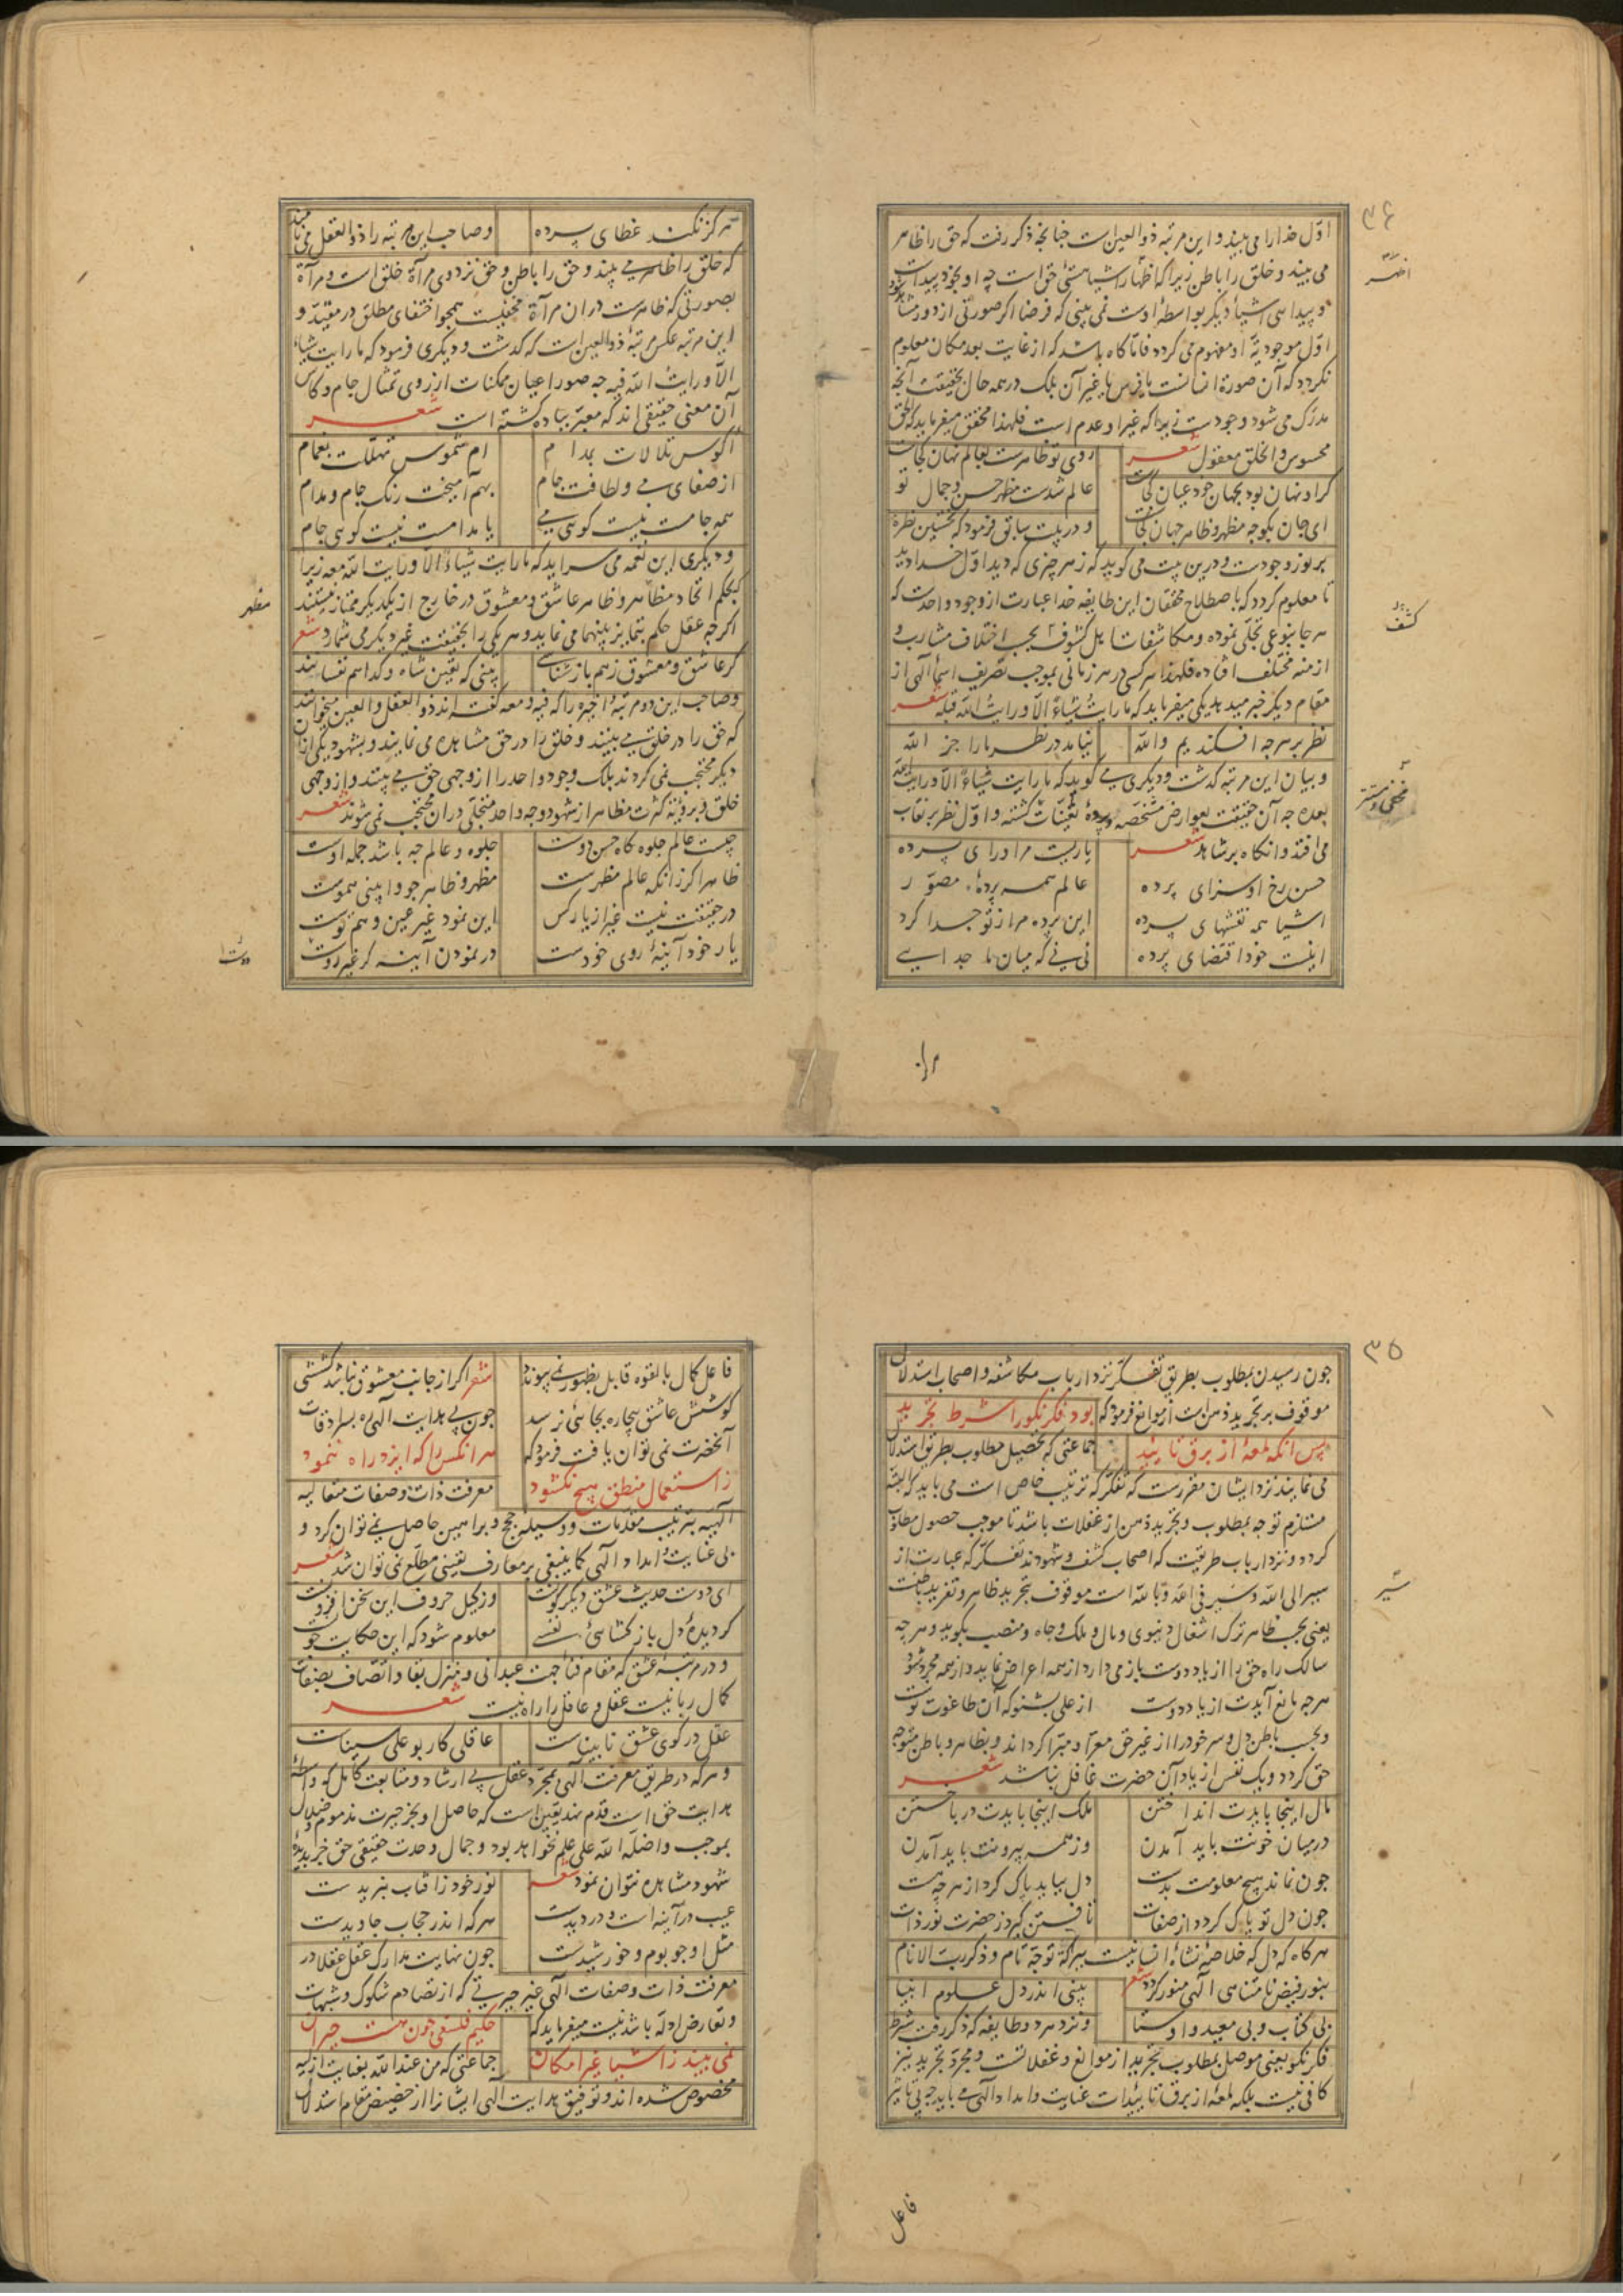 ۳۴
اوّل خدا را می بیند و این مرتبه ذوالعین است چنانچه ذکر رفت که حق را ظاهر
می بیند و خلق را باطن زیرا که اظهار اشیا هستی حق است چه او بخود پیداست
و پیدایی اشیاء دیگر بواسطهٔ اوست نمی بینی که فرضا اگر صورتی از دور مشاهد شود
اوّل موجودیّة او مفهوم می گردد فامّا گاه باشد که از غایت بعد مکان معلوم
نگردد که آن صورة انسانست یا فرس یا غیر آن بلک در همه حال بحقیقت آنچه
مدرک می شود وجودست زیرا که غیر او عدم است فلهذا محقق میفرماید که الحق
محسوس و الخلق معقول شعر
روی تو ظاهرست بعالم نهان کجاست
گر او نهان بود بجهان خود عیان کجاست
عالم شدست مظهر حسن و جمال تو
ای جان بگو چه مظهر و ظاهر جهان کجاست
و در بیت سابق فرمود که نخستین نظره
بر نور وجودست و درین بیت می گوید که ز هر چیزی که دید اوّل خدا دید
تا معلوم گردد که باصطلاح محققان این طایفه خدا عبارت از وجود واحدست که
هر جا بنوعی تجلّی نموده و مکاشفات اهل کشوف بحسب اختلاف مشارب و
ازمنه مختلف افتاده فلهذا هر کسی در هر زمانی بموجب تصریف اسماء الهی از
مقام دیگر خبر میدهد یکی میفرماید که ما رایتُ شیئاءً الّا و رایتُ اللّه قبله شعر
نظر بر هر چه افکندیم واللّه
نیامد در نظر ما را جز اللّه
و بیان این مرتبه گذشت و دیگری می گوید که ما رایت شیئاءً الّا و رایت اللّه
بعده چه آن حقیقت بعوارض مشخصه در پردهٔ تعیّنات گشته و اوّل نظر بر نقاب
می افتد و انگاه بر شاهد شعر
یاریست مرا ورای پرده
حسن رخ او سزای پرده
عالم همه پردهٔ مصوّر
اشیا همه نقشهای پرده
این پرده مرا ز تو جدا کرد
اینست خود اقتضای پرده
نی نی که میان ما جدایی
اظهر
کشف
مخفی و مستتر
هرگز
هرگز نکند غطای پرده
و صاحب این مرتبه را ذوالعقل می نامند
که خلق را ظاهر می بیند و حق را باطن و حق نزد وی مرآة خلق است و مرآة
بصورتی که ظاهرست در آن مرآة مخفیست همچو اختفای مطلق در مقیّد و
این مرتبه عکس مرتبهٔ ذوالعین است که گذشت و دیگری فرمود که ما رایت شیئاءً
الّا و رایتُ اللّه فیه چه صور اعیان ممکنات از روی تمثال جام و کاس
آن معنی حقیقی اند که معبّر بباده گشته است شعر
اکوس تلالات بمدام
ام شموس تهلّلت بغمام
از صفای می و لطافت جام
بهم آمیخت رنگ جام و مدام
همه جامست نیست گویی می
یا مدامست نیست گویی جام
و دیگری این نغمه می سراید که ما رایت شیئاءً الّا و رایت اللّه معه زیرا
بحکم اتحاد مظاهر و ظاهر عاشق و معشوق در خارج از یکدیگر ممتاز نیستند
اگرچه عقل حکم بتمایز بینهما می نماید و هر یکی را بحقیقت غیر دیگر می شمارد شعر
گر عاشق و معشوق ز هم باز شناسی
بینی که یقین شاه و گدا هم نفسانند
و صاحب این دو مرتبهٔ اخیره را که فیه و معه گفته اند ذوالعقل و العین میخوانند
که حق را در خلق می بینند و خلق را در حق مشاهده می نمایند و بشهود یکی از آن
دیگر محتجب نمی گردند بلک وجود واحد را از وجهی حق می بینند و از وجهی
خلق و برؤیة کثرت مظاهر از شهود وجه واحد متجلّی در آن محتجب نمی شوند شعر
چیست عالم جلوه گاه حسن دوست
جلوه و عالم چه باشد جمله اوست
ظاهرا گر زانکه عالم مظهرست
مظهر و ظاهر چو وا بینی هموست
در حقیقت نیست غیر از یار کس
این نمود غیر عین وهم توست
یار خود آینهٔ روی خودست
در نمودن آینه گر غیر روست
مظهر
دوست
۳۵
چون رسیدن بمطلوب بطریق تفکّر نزد ارباب مکاشفه و اصحاب استدلال
موقوف بر تجرید ذهن است از موانع فرمود که بود فکر نکو را شرط تجرید
پس آنکه لمعهٔ از برق تایید
جماعتی که تحصیل مطلوب بطریق استدلال
می نمایند نزد ایشان مقررست که تفکّر که ترتیب خاص است می باید که البته
مستلزم توجه بمطلوب و تجرید ذهن از غفلات باشد تا موجب حصول مطلوب
گردد و نزد ارباب طریقت که اصحاب کشف و شهودند تفکّر که عبارت از
سیر الی اللّه و سیر فی اللّه و باللّه است موقوف بتجرید ظاهر و تفرید باطنست
یعنی بحسب ظاهر ترک اشغال دنیوی و مال و ملک و جاه و منصب بگوید و هر چه
سالک راه حق را از یاد دوست باز می دارد از همه اعراض نماید و از همه مجرد شود
هر چه مانع آیدت از یاد دوست
از علی بشنو که آن طاغوت توست
و بحسب باطن دل و سر خود را از غیر حق معرّا و مبرّا گرداند و بظاهر و باطن متوجه
حق گردد و یک نفس از یاد آن حضرت غافل نباشد شعر
مال اینجا بایدت انداختن
ملک اینجا بایدت در باختن
در میان خونت باید آمدن
وز همه بیرونت باید آمدن
چون نماند هیچ معلومت بدست
دل بباید پاک کرد از هر چه هست
چون دل تو پاک گردد از صفات
تافتن گیرد ز حضرت نور ذات
هر گاه که دل که خلاصهٔ نشاءهٔ انسانیست ببرکة توجه تام و ذکر رب الانام
بنور فیض نامتناهی الهی منور گردد شعر
بینی اندر دل علوم انبیا
بی کتاب و بی معید و اوستا
و نزد هر دو طایفه که ذکر رفت شرط
فکر نکو یعنی موصل بمطلوب تجرید از موانع و غفلاتست و مجرّد تجرید نیز
کافی نیست بلکه لمعهٔ از برق تاییدات عنایت و امداد الهی می باید چه بی تاثیر
سیر
فاعل
فاعل کمال بالقوه قابل بظهور نمی پیوندد
شعر اگر از جانب معشوق نباشد کششی
کوشش عاشق بیچاره بجایی نرسد
چون بی هدایت الهی ره بسرادقات
آنحضرت نمی توان یافت فرمود که
هر انکس را که ایزد راه ننمود
ز استعمال منطق هیچ نگشود
معرفت ذات و صفات متعالیه
الهیه بترتیب مقدمات و وسیله حجج و براهین حاصل نمی توان کرد و
بی عنایت و امداد الهی کما ینبغی بر معارف یقینی مطّلع نمی توان شد شعر
ای دوست حدیث عشق دیگرگونست
وز کیل حروف این سخن افزونست
گر دیدهٔ دل باز گشایی نفسی
معلوم شود که این حکایت چونست
و در مرتبهٔ عشق که مقام فنا جهت عبدانی و منزل بقا و اتّصاف بصفات
کمال ربانیست عقل و عاقل را راه نیست شعر
عقل در کوی عشق نابیناست
عاقلی کار بو علی سیناست
و هر که در طریق معرفت الهی بمجرّد عقل بی ارشاد و متابعت کامل که واسطهٔ
هدایت حق است قدم نهد یقین است که حاصل او بجز حیرت مذموم و ضلال
بموجب و اضلّه اللّه علی علم نخواهد بود و جمال وحدت حقیقی حق جز بدیدهٔ
شهود مشاهده نتوان نمود شعر
نور خود ز افتاب نبریدست
عیب در آینه است و در دیدست
هر که اندر حجاب جاویدست
مثل او چو بوم و خورشیدست
چون نهایت مدارک عقل عقلا در
معرفت ذات و صفات الهی غیر حیرتی که از تصادم شکوک و شبهات
و تعارض ادله باشد نیست میفرماید که
حکیم فلسفی چون هست حیران
نمی بیند ز اشیا غیر امکان
جماعتی که من عنداللّه بعنایت ازلیه
مخصوص شده اند و توفیق هدایت الهی ایشان را از حضیض مقام استدلال